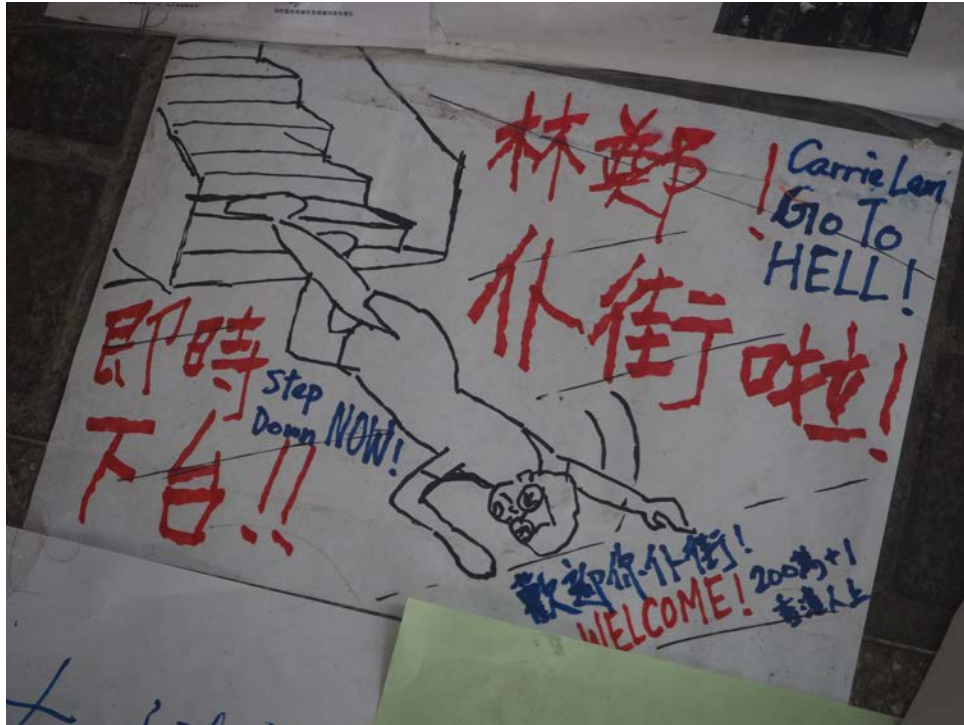 林鄭！
仆街啦！
Carrie Lam
Go To
HELL!
即時
下台!!
Step
Down NOW!
歡迎你仆街!
WELCOME!
200萬+1
香港人上